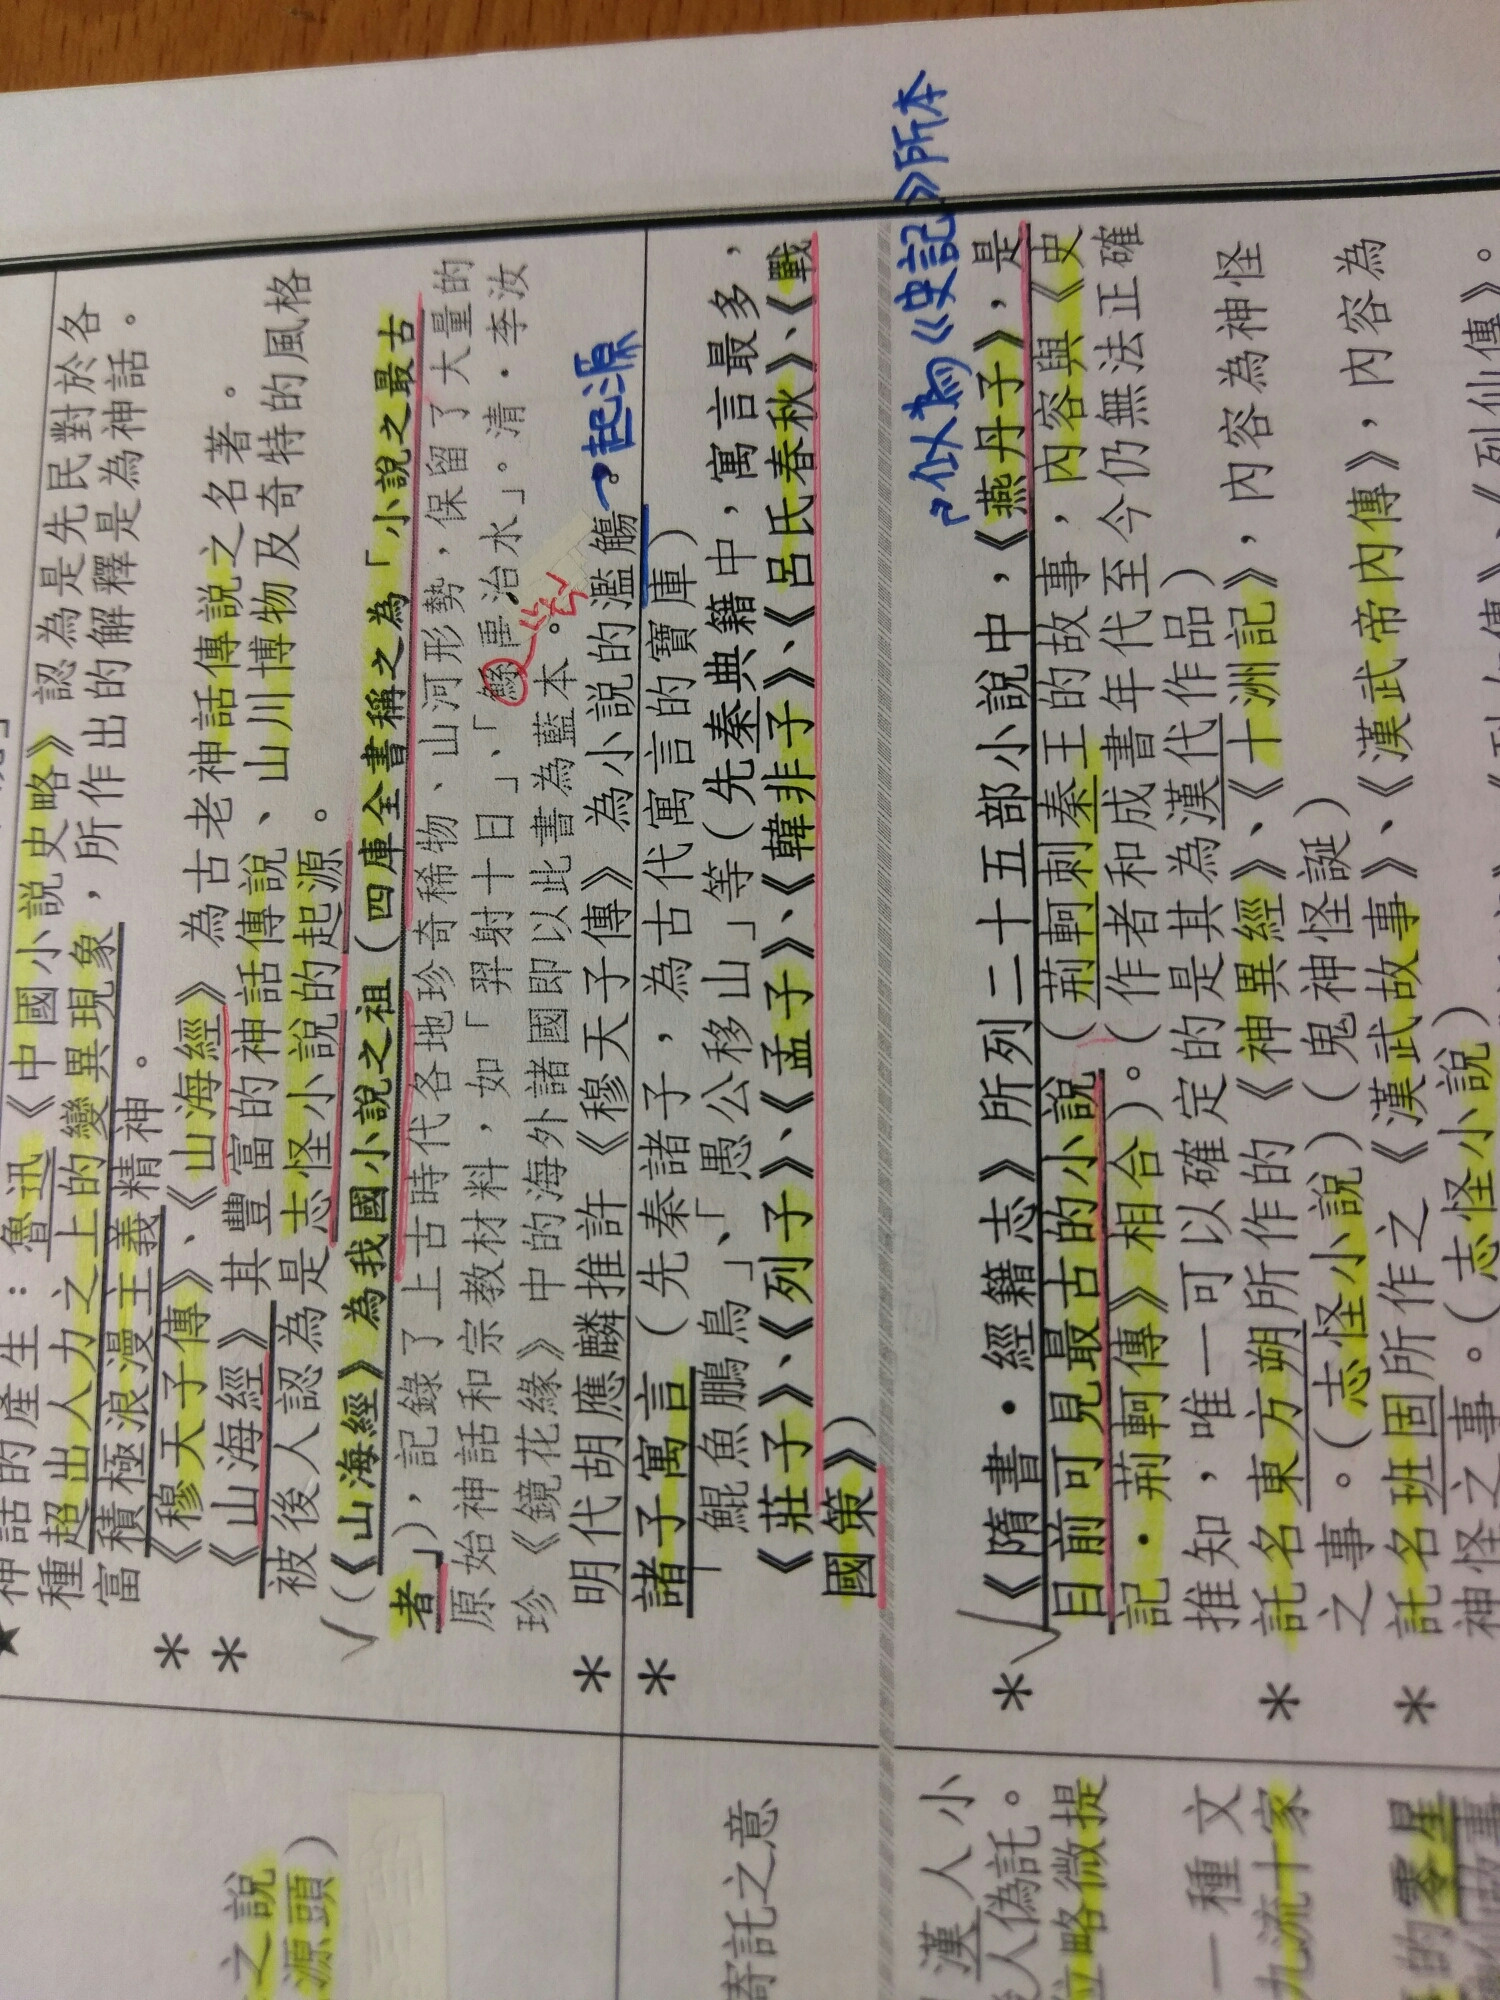 神話的產生：魯迅《中國小說史略》認為是先民對於各
種超出人力之上的變異現象，所作出的解釋是為神話。
富積極浪漫主義精神。
* 《穆天子傳》、《山海經》為古老神話傳說之名著。
* 《山海經》其豐富的神話傳說、山川博物及奇特的風格
被後人認為是志怪小說的起源。
（《山海經》為我國小說之祖（四庫全書稱之為「小說之最古
者」），記錄了上古時代各地珍奇稀物、山河形勢，保留了大量的
原始神話和宗教材料，如「羿射十日」、「鯀禹治水」。清．李汝
珍《鏡花緣》中的海外諸國即以此書為藍本。
* 明代胡應麟推許《穆天子傳》為小說的濫觴。
起源
* 諸子寓言（先秦諸子，為古代寓言的寶庫）
鯤魚鵬鳥」、「愚公移山」等（先秦典籍中，寓言最多，
《莊子》、《列子》、《孟子》、《韓非子》、《呂氏春秋》、《戰
國策》）
似為《史記》所本
* 《隋書．經籍志》所列二十五部小說中，《燕丹子》，是
目前可見最古的小說（荊軻刺秦王的故事，內容與《史
記．荊軻傳》相合）。（作者和成書年代至今仍無法正確
推知，唯一可以確定的是其為漢代作品）
* 託名東方朔所作的《神異經》、《十洲記》，內容為神怪
之事。（志怪小說）（鬼神怪誕）
* 託名班固所作之《漢武故事》、《漢武帝內傳》，內容為
神怪之事。（志怪小說）
《列仙傳》。
之說
源頭）
寄託之意
漢人小
後人偽託。
位略微提
一種文
九流十家
的零星